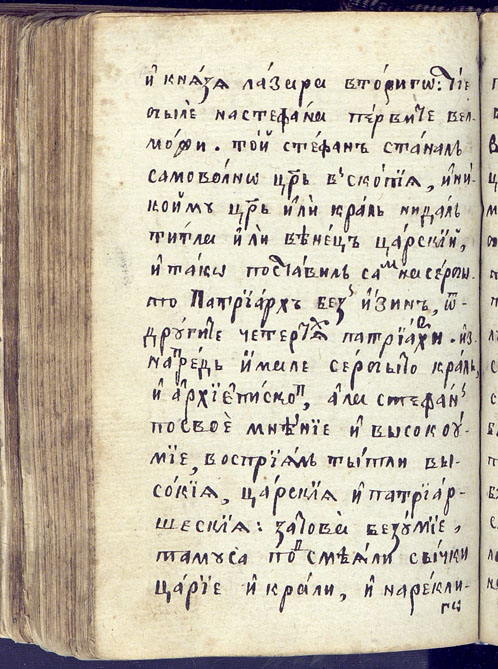 и҆ кнѧ́зѧ ла́зара вто́ригѡ: тїе
ѡбыле настефа́на пе́рвиѣ вел-
мо́жи. то́й сте́фанъ ста́налъ
самово́лнѡ цр҃ь в скопїѧ, и҆ ни-
ко́ймꙋ цр҃ь и҆лѝ кра́ль нидалъ
ти́тла и҆лѝ вѣне́цъ ца́рскїй,
и҆ та́кѡ поста́вилъ самъ на
Патрїа́рхъ без и҆́зинъ, ѿ-
дрꙋ́гите че́тери патрїа́рхи. и҆з
напре́дь и҆́мале кра́ль,
и҆ а҆рхїепи́скопъ, а҆́ла сте́фанъ
посвоѐ мнѣ́нїе и҆ высокоꙋ́-
мїе, воспрїѧ́лъ ты́тли вы-
со́кїѧ, ца́рскїѧ и҆ патрїа́р-
шескїѧ: за҆това̀ безꙋ́мїе,
тамꙋса посмѣѧ́ли сы́чки
ца́рїе и҆ кра́ли, и҆ наре́кли-
га